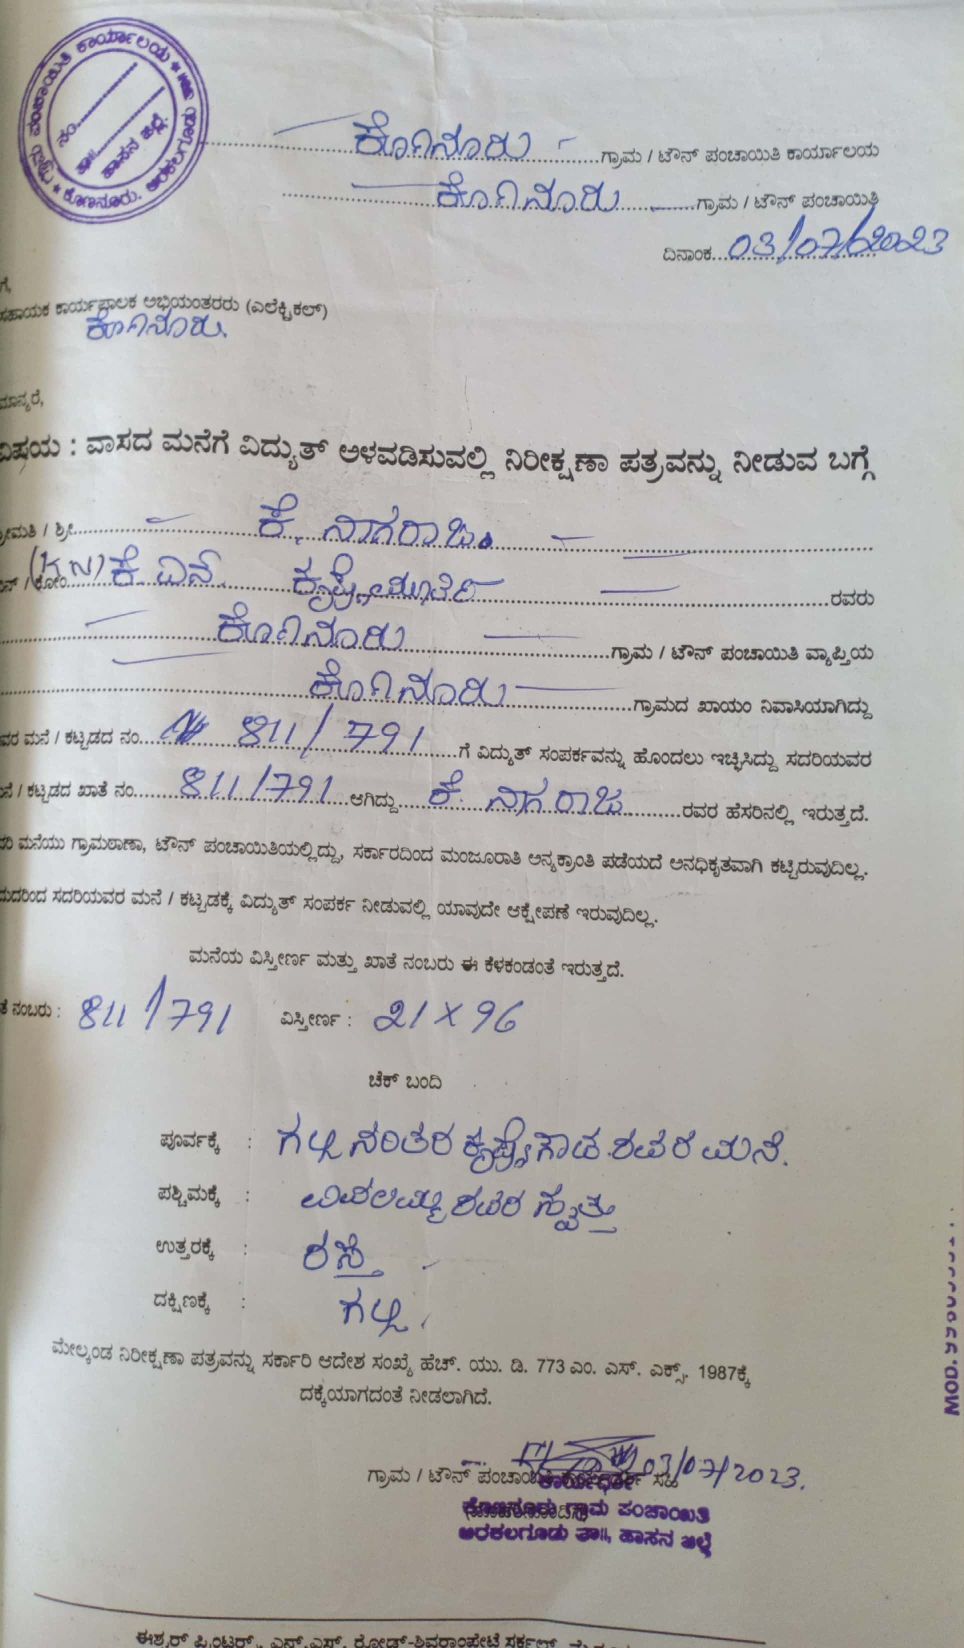 ಗ್ರಾಮ ಪಂಚಾಯಿತಿ ಕಾರ್ಯಾಲಯ * ಕೊಣನೂರು. ಅರಕಲಗೂಡು ತಾ॥ *
ನಂ.
ತಾ॥
ಹಾಸನ ಜಿಲ್ಲೆ.
ಕೊಣನೂರು ಗ್ರಾಮ / ಟೌನ್ ಪಂಚಾಯಿತಿ ಕಾರ್ಯಾಲಯ
ಕೊಣನೂರು ಗ್ರಾಮ / ಟೌನ್ ಪಂಚಾಯಿತಿ
ದಿನಾಂಕ 03/07/2023
ಗೆ,
ಸಹಾಯಕ ಕಾರ್ಯಪಾಲಕ ಅಭಿಯಂತರರು (ಎಲೆಕ್ಟ್ರಿಕಲ್)
ಕೊಣನೂರು.
ಮಾನ್ಯರೆ,
ವಿಷಯ : ವಾಸದ ಮನೆಗೆ ವಿದ್ಯುತ್ ಅಳವಡಿಸುವಲ್ಲಿ ನಿರೀಕ್ಷಣಾ ಪತ್ರವನ್ನು ನೀಡುವ ಬಗ್ಗೆ
ಶ್ರೀಮತಿ / ಶ್ರೀ ಕೆ. ನಾಗರಾಜು
ಬಿನ್ / ಕೋಂ (K N) ಕೆ ಎನ್. ಕೃಷ್ಣೇಮೂರ್ತಿ ರವರು
ಕೊಣನೂರು ಗ್ರಾಮ / ಟೌನ್ ಪಂಚಾಯಿತಿ ವ್ಯಾಪ್ತಿಯ
ಕೊಣನೂರು ಗ್ರಾಮದ ಖಾಯಂ ನಿವಾಸಿಯಾಗಿದ್ದು
ವರ ಮನೆ / ಕಟ್ಟಡದ ನಂ. 811/791 ಗೆ ವಿದ್ಯುತ್ ಸಂಪರ್ಕವನ್ನು ಹೊಂದಲು ಇಚ್ಛಿಸಿದ್ದು ಸದರಿಯವರ
ನೆ / ಕಟ್ಟಡದ ಖಾತೆ ನಂ. 811/791 ಆಗಿದ್ದು ಕೆ. ನಾಗರಾಜು ರವರ ಹೆಸರಿನಲ್ಲಿ ಇರುತ್ತದೆ.
ದರಿ ಮನೆಯು ಗ್ರಾಮಠಾಣಾ, ಟೌನ್ ಪಂಚಾಯಿತಿಯಲ್ಲಿದ್ದು, ಸರ್ಕಾರದಿಂದ ಮಂಜೂರಾತಿ ಅನ್ಯಕ್ರಾಂತಿ ಪಡೆಯದೆ ಅನಧಿಕೃತವಾಗಿ ಕಟ್ಟಿರುವುದಿಲ್ಲ.
ದುದರಿಂದ ಸದರಿಯವರ ಮನೆ / ಕಟ್ಟಡಕ್ಕೆ ವಿದ್ಯುತ್ ಸಂಪರ್ಕ ನೀಡುವಲ್ಲಿ ಯಾವುದೇ ಆಕ್ಷೇಪಣೆ ಇರುವುದಿಲ್ಲ.
ಮನೆಯ ವಿಸ್ತೀರ್ಣ ಮತ್ತು ಖಾತೆ ನಂಬರು ಈ ಕೆಳಕಂಡಂತೆ ಇರುತ್ತದೆ.
ತೆ ನಂಬರು : 811/791 ವಿಸ್ತೀರ್ಣ : 21 X 96
ಚೆಕ್ ಬಂದಿ
ಪೂರ್ವಕ್ಕೆ : ಗಲ್ಲಿ ನಂತರ ಕೃಷ್ಣೇಗೌಡ ರವರ ಮನೆ.
ಪಶ್ಚಿಮಕ್ಕೆ : ರವರ ಸ್ವತ್ತು
ಉತ್ತರಕ್ಕೆ : ರಸ್ತೆ
ದಕ್ಷಿಣಕ್ಕೆ : ಗಲ್ಲಿ.
ಮೇಲ್ಕಂಡ ನಿರೀಕ್ಷಣಾ ಪತ್ರವನ್ನು ಸರ್ಕಾರಿ ಆದೇಶ ಸಂಖ್ಯೆ ಹೆಚ್. ಯು. ಡಿ. 773 ಎಂ. ಎಸ್. ಎಕ್ಸ್. 1987ಕ್ಕೆ
ದಕ್ಕೆಯಾಗದಂತೆ ನೀಡಲಾಗಿದೆ.
03/07/2023.
ಗ್ರಾಮ / ಟೌನ್ ಪಂಚಾಯಿತಿ ಸಹಿ
ಕೊಣನೂರು ಗ್ರಾಮ ಪಂಚಾಯಿತಿ
ಅರಕಲಗೂಡು ತಾ॥, ಹಾಸನ ಜಿಲ್ಲೆ
ಈಶ್ವರ್ ಪ್ರಿಂಟರ್ಸ್, ಎನ್.ಎಸ್. ರೋಡ್-ಶಿವರಾಂಪೇಟೆ ಸರ್ಕಲ್,